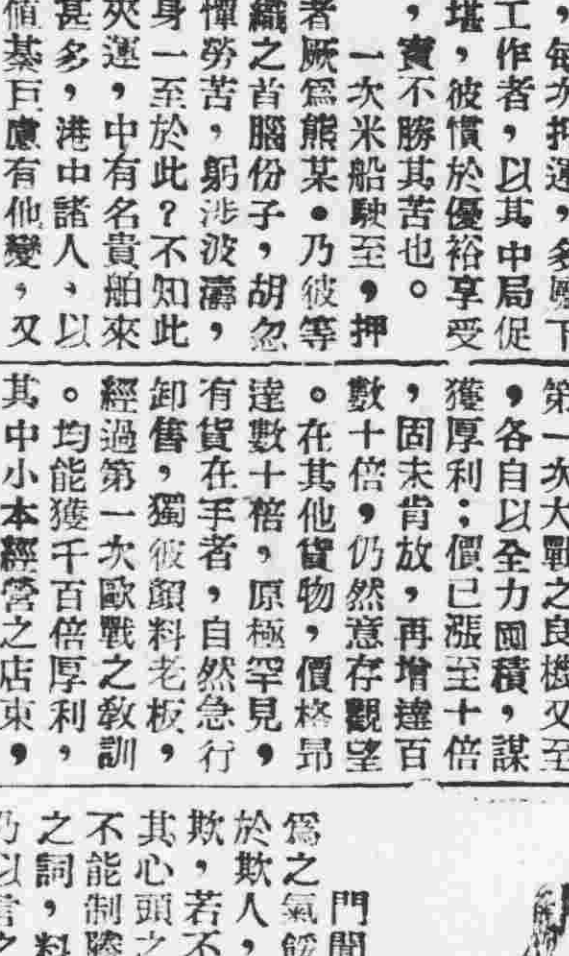 ，每次押運，多屬下
工作者，以其中局促
堪，彼慣於優裕享受
，實不勝其苦也。
一次米船駛至，押
者厥爲熊某。乃彼等
織之首腦份子，胡忽
憚勞苦，躬涉波濤，
身一至於此？不知此
夾運，中有名貴舶來
甚多，港中諸人，以
值綦巨慮有他變，又
第一次大戰之良機又至
，各自以全力囤積，謀
獲厚利；價已漲至十倍
，固未肯放，再增達百
數十倍，仍然意存觀望
。在其他貨物，價格昂
達數十倍，原極罕見，
有貨在手者，自然急行
卸售，獨彼顏料老板，
經過第一次歐戰之敎訓
。均能獲千百倍厚利，
其中小本經營之店東，
門聞
爲之氣餒
於欺人，
欺，若不
其心頭之
不能制
之詞，料
乃以言之